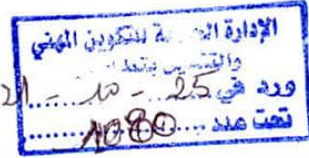 الإدارة الجهوية للتكوين المهني
والتشغيل
ورد في 25 - 10 - 21
تحت عدد 1080